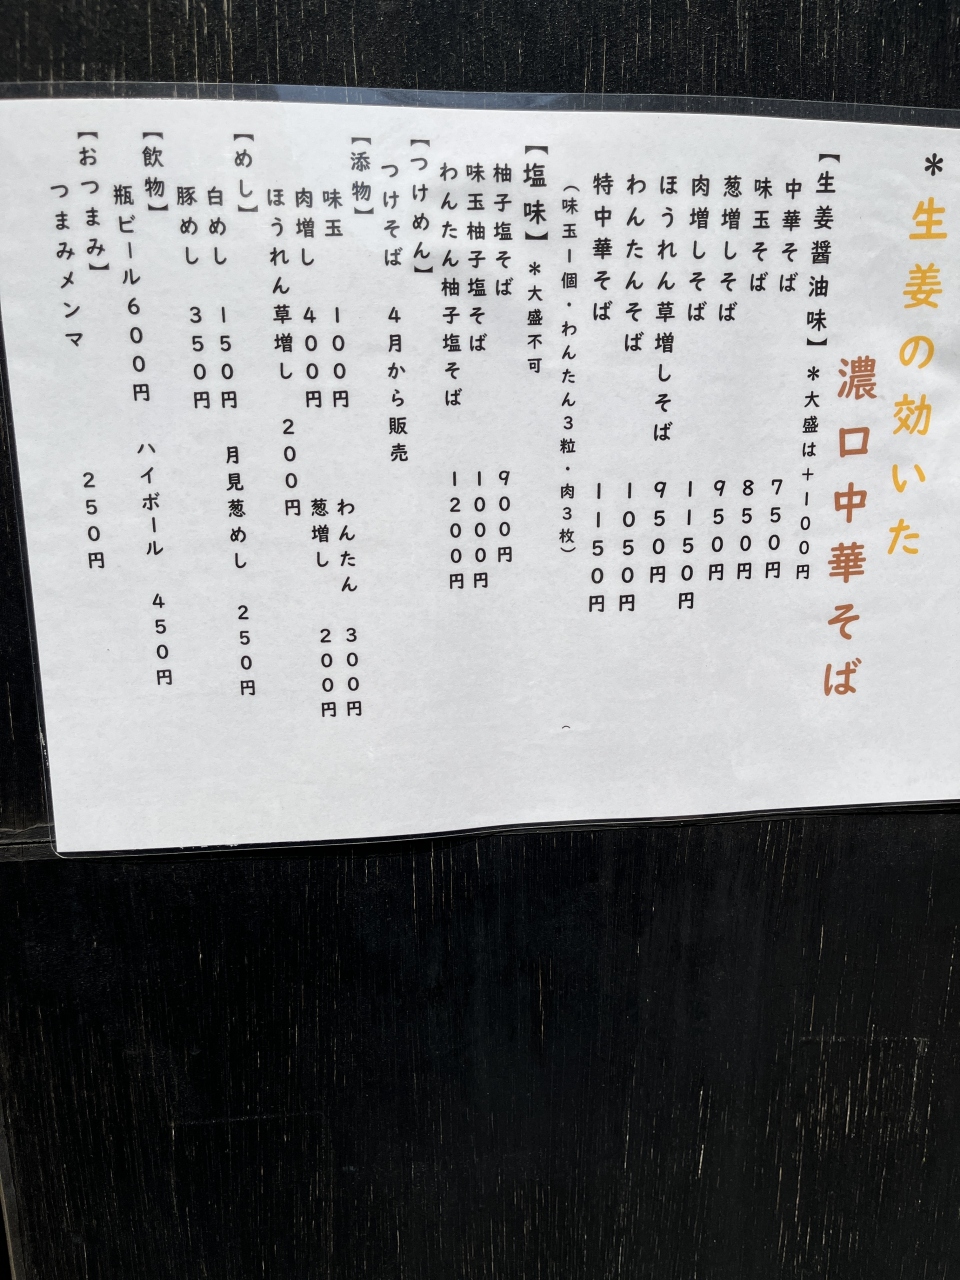 *生姜の効いた
濃口中華そば
【生姜醤油味】*大盛は+100円
中華そば 750円
味玉そば 850円
葱増しそば 950円
肉増しそば 1150円
ほうれん草増しそば 950円
わんたんそば 1050円
特中華そば 1150円
(味玉1個・わんたん3粒・肉3枚)
【塩味】*大盛不可
柚子塩そば 900円
味玉柚子塩そば 1000円
わんたん柚子塩そば 1200円
【つけめん】
つけそば 4月から販売
【添物】
味玉 100円 わんたん 300円
肉増し 400円 葱増し 200円
ほうれん草増し 200円
【めし】
白めし 150円 月見葱めし 250円
豚めし 350円
【飲物】
瓶ビール 600円 ハイボール 450円
【おつまみ】
つまみメンマ 250円